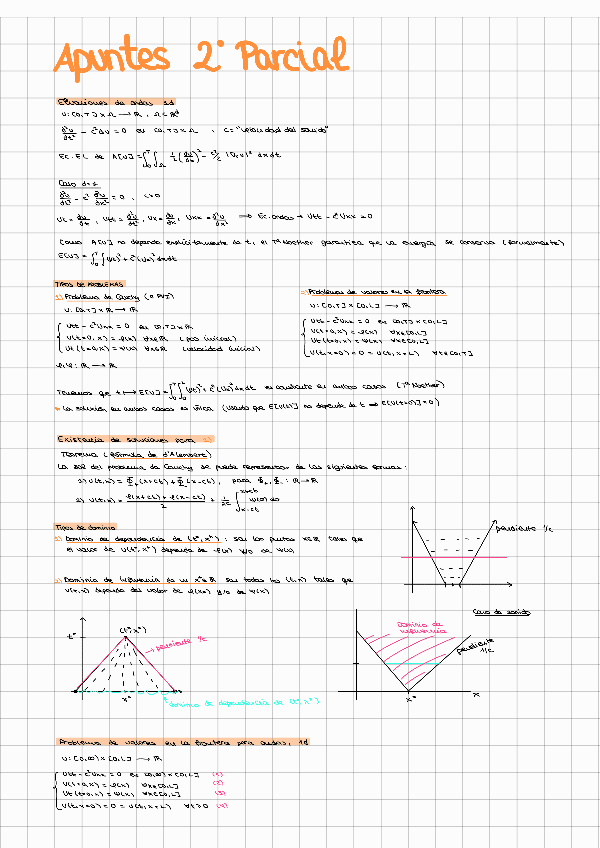 Apuntes 2º Parcial
Ecuaciones de ondas 1d
u: [0,T] x Ω → ℝ, Ω ⊂ ℝᵈ
∂²u/∂t² - c²Δu = 0 en [0,T] x Ω , c = "velocidad del sonido"
Ec. E.L. de A[u] = ∫₀ᵀ∫_Ω 1/2 (∂u/∂t)² - c²/2 |∇ₓu|² dxdt
Caso d=1
∂²u/∂t² - c² ∂²u/∂x² = 0 , c>0
ut = ∂u/∂t , utt = ∂²u/∂t² , ux = ∂u/∂x , uxx = ∂²u/∂x² ⟹ Ec. ondas → utt - c²uxx = 0
Como A[u] no depende explícitamente de t, el Tª Noether garantiza que la energía se conserva (formalmente)
E[u] = ∫₀ᵀ∫ (ut)² + c²(ux)² dxdt
TIPOS DE PROBLEMAS
1) Problema de Cauchy (o PVI)
u: [0,T] x ℝ → ℝ
utt - c²uxx = 0 en [0,T] x ℝ
u(t=0,x) = φ(x) ∀x∈ℝ (pos inicial)
ut(t=0,x) = ψ(x) ∀x∈ℝ (velocidad inicial)
φ,ψ: ℝ → ℝ
2) Problemas de valores en la frontera
u: [0,T] x [0,L] → ℝ
utt - c²uxx = 0 en [0,T] x [0,L]
u(t=0,x) = φ(x) ∀x∈[0,L]
ut(t=0,x) = ψ(x) ∀x∈[0,L]
u(t,x=0) = 0 = u(t,x=L) ∀t∈[0,T]
Tenemos que t ↦ E[u] = ∫₀ᵀ∫ (ut)² + c²(ux)² dxdt es constante en ambos casos (Tª Noether)
La solución en ambos casos es única (usando que E[u(t)] no depende de t ⟹ E[u(t=0)] = 0)
Existencia de soluciones para 1)
Teorema (fórmula de d'Alembert)
La sol del problema de Cauchy se puede representar de las siguientes formas:
1) u(t,x) = Φ₊(x+ct) + Φ₋(x-ct), para Φ₊,Φ₋: ℝ → ℝ
2) u(t,x) = φ(x+ct) + φ(x-ct) / 2 + 1/2c ∫ₓ₋ct ˣ⁺ᶜᵗ ψ(s) ds
Tipos de dominio
1) Dominio de dependencia de (t*,x*): son los puntos x∈ℝ tales que
el valor de u(t*,x*) depende de φ(x) y/o de ψ(x)
pendiente 1/c
2) Dominio de influencia de un x*∈ℝ son todos los (t,x) tales que
u(t,x) depende del valor de φ(x*) y/o de ψ(x*)
Cono de sonido
(t*,x*)
t*
pendiente 1/c
x*
dominio de dependencia de (t*,x*)
Dominio de
influencia
pendiente
1/c
x*
x
Problema de valores en la frontera para ondas, 1d
u: [0,∞) x [0,L] → ℝ
utt - c²uxx = 0 en [0,∞) x [0,L] (1)
u(t=0,x) = φ(x) ∀x∈[0,L] (2)
ut(t=0,x) = ψ(x) ∀x∈[0,L] (3)
u(t,x=0) = 0 = u(t,x=L) ∀t≥0 (4)